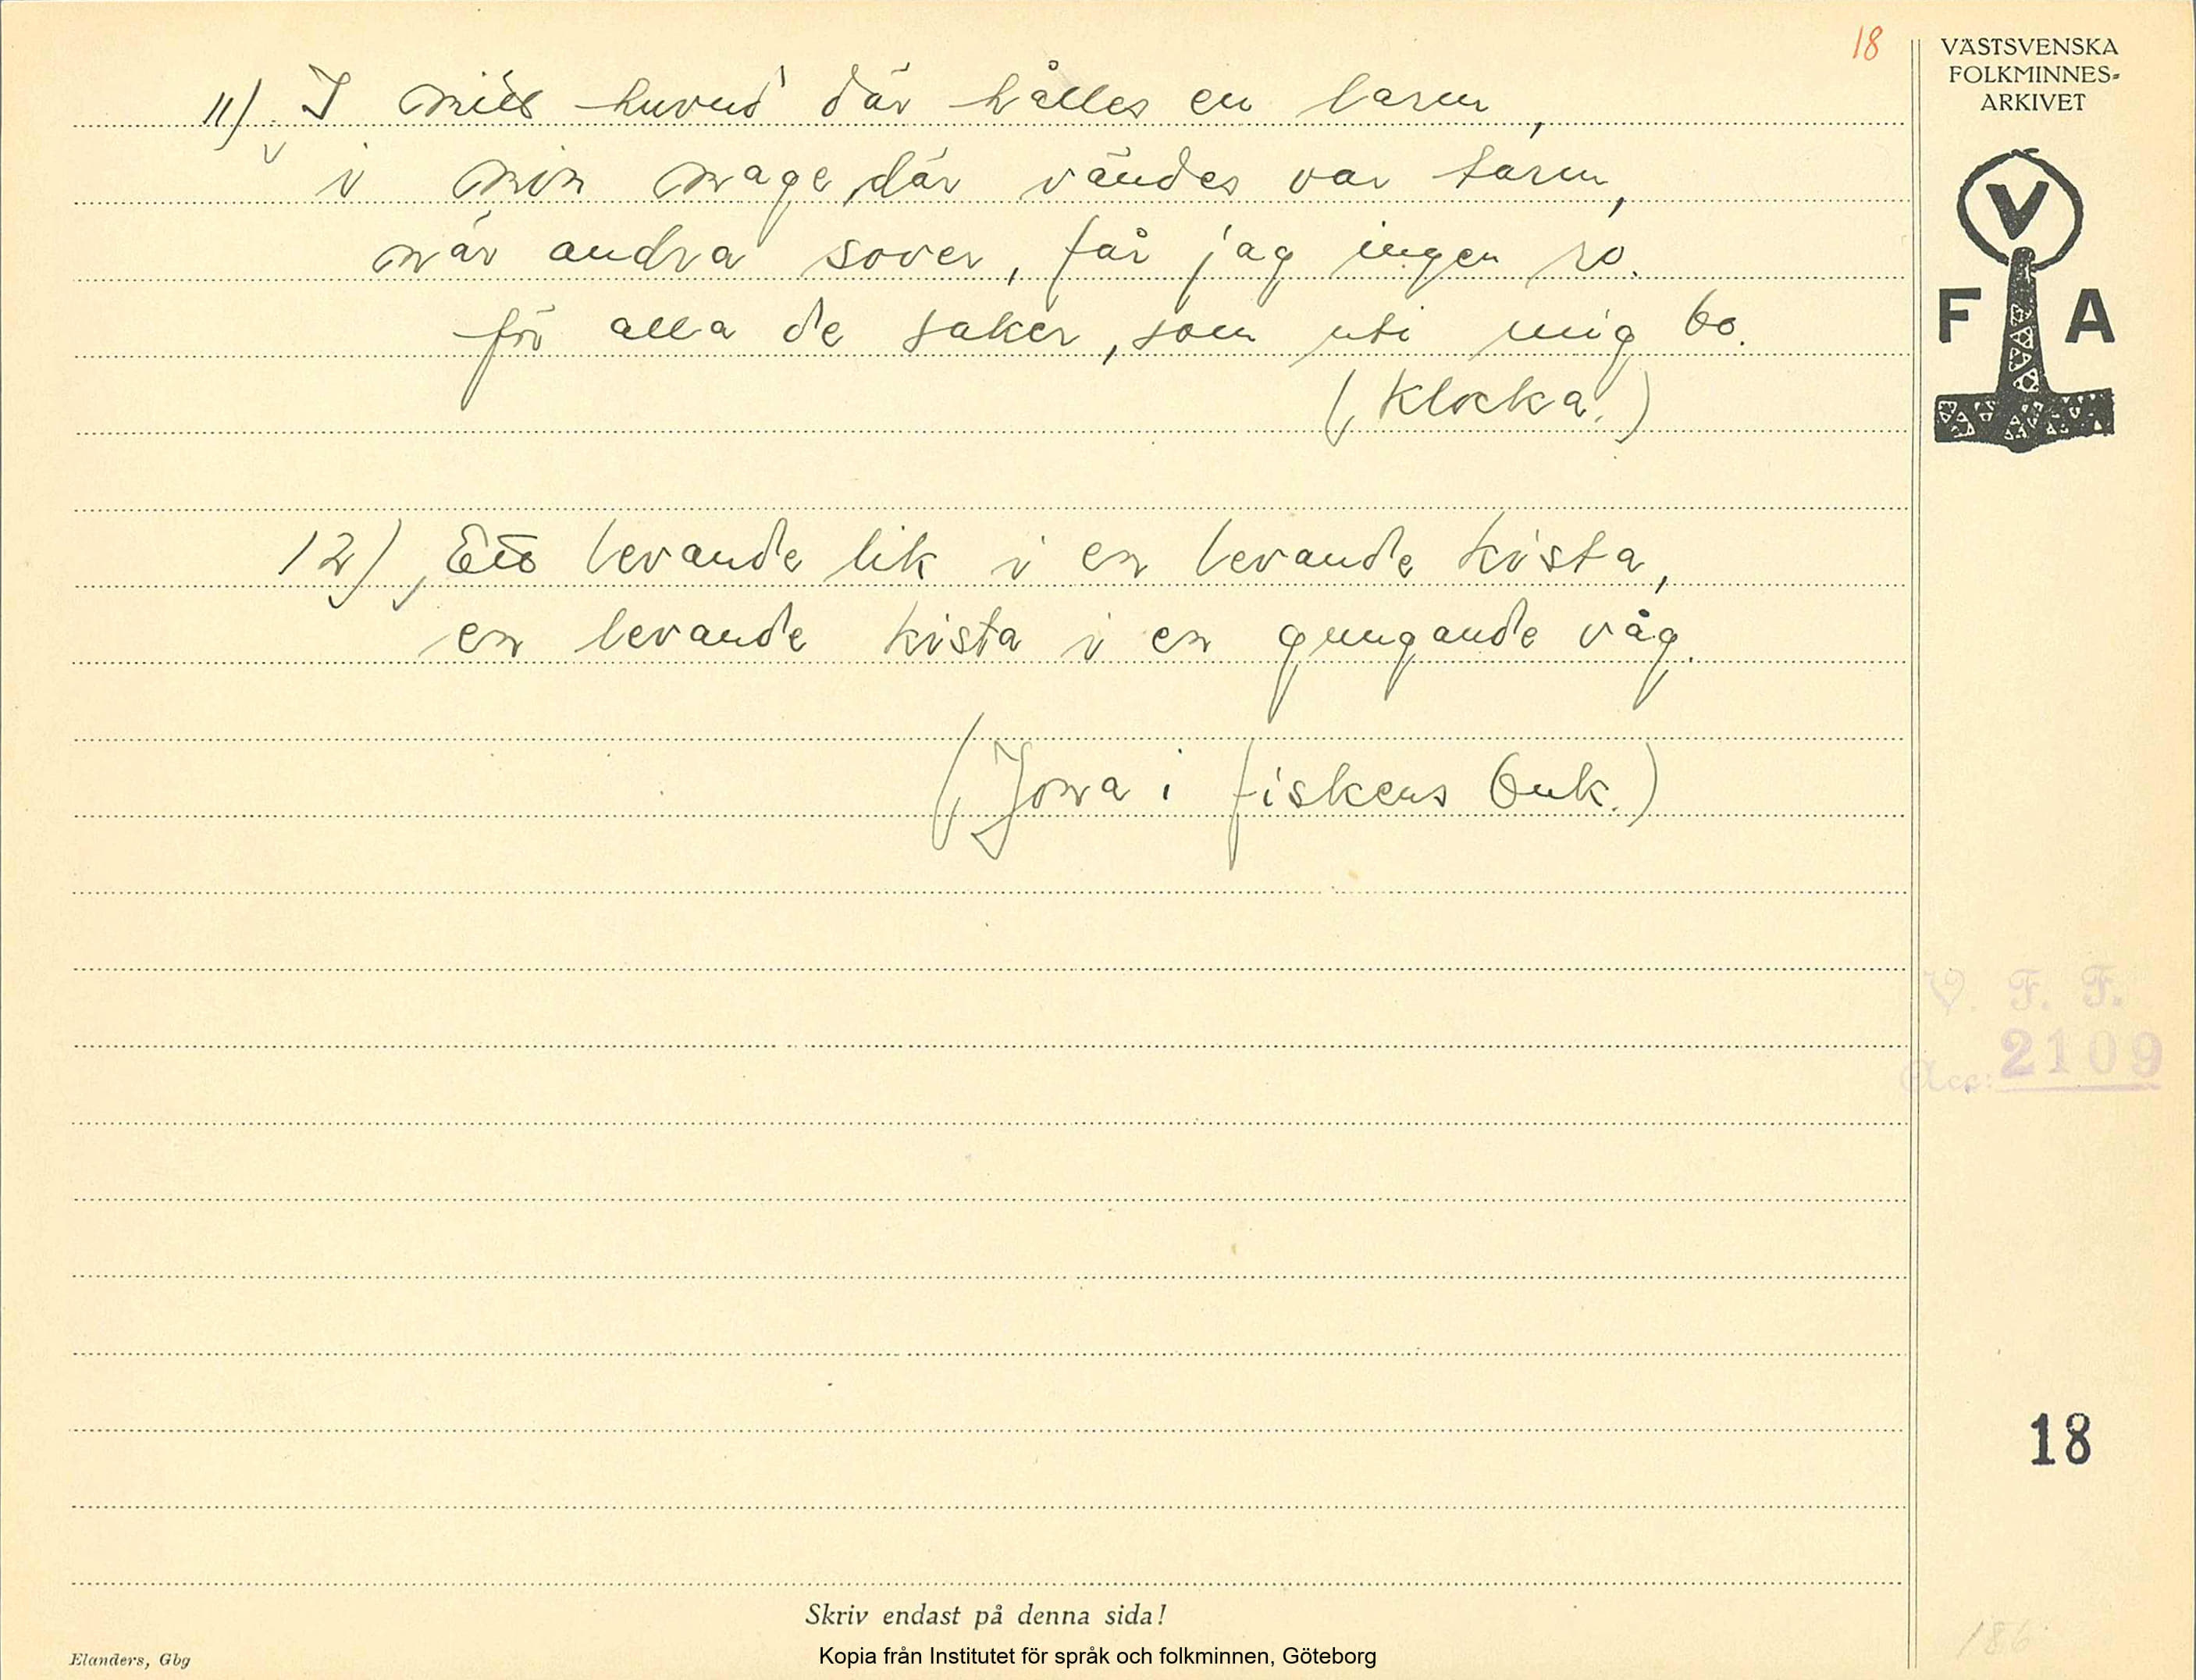 18
VÄSTSVENSKA
FOLKMINNES-
ARKIVET
V
F A
11) I mitt huvud där hålles en larm,
i min mage där vändes var tarm,
när andra sover, får jag ingen ro.
för alla de saker, som uti mig bo.
(Klocka.)
12) Ett levande lik i en levande kista,
en levande kista i en gungande våg.
(Jona i fiskens buk.)
V. F. F.
Acc: 2109
18
186
Skriv endast på denna sida!
Elanders, Gbg
Kopia från Institutet för språk och folkminnen, Göteborg